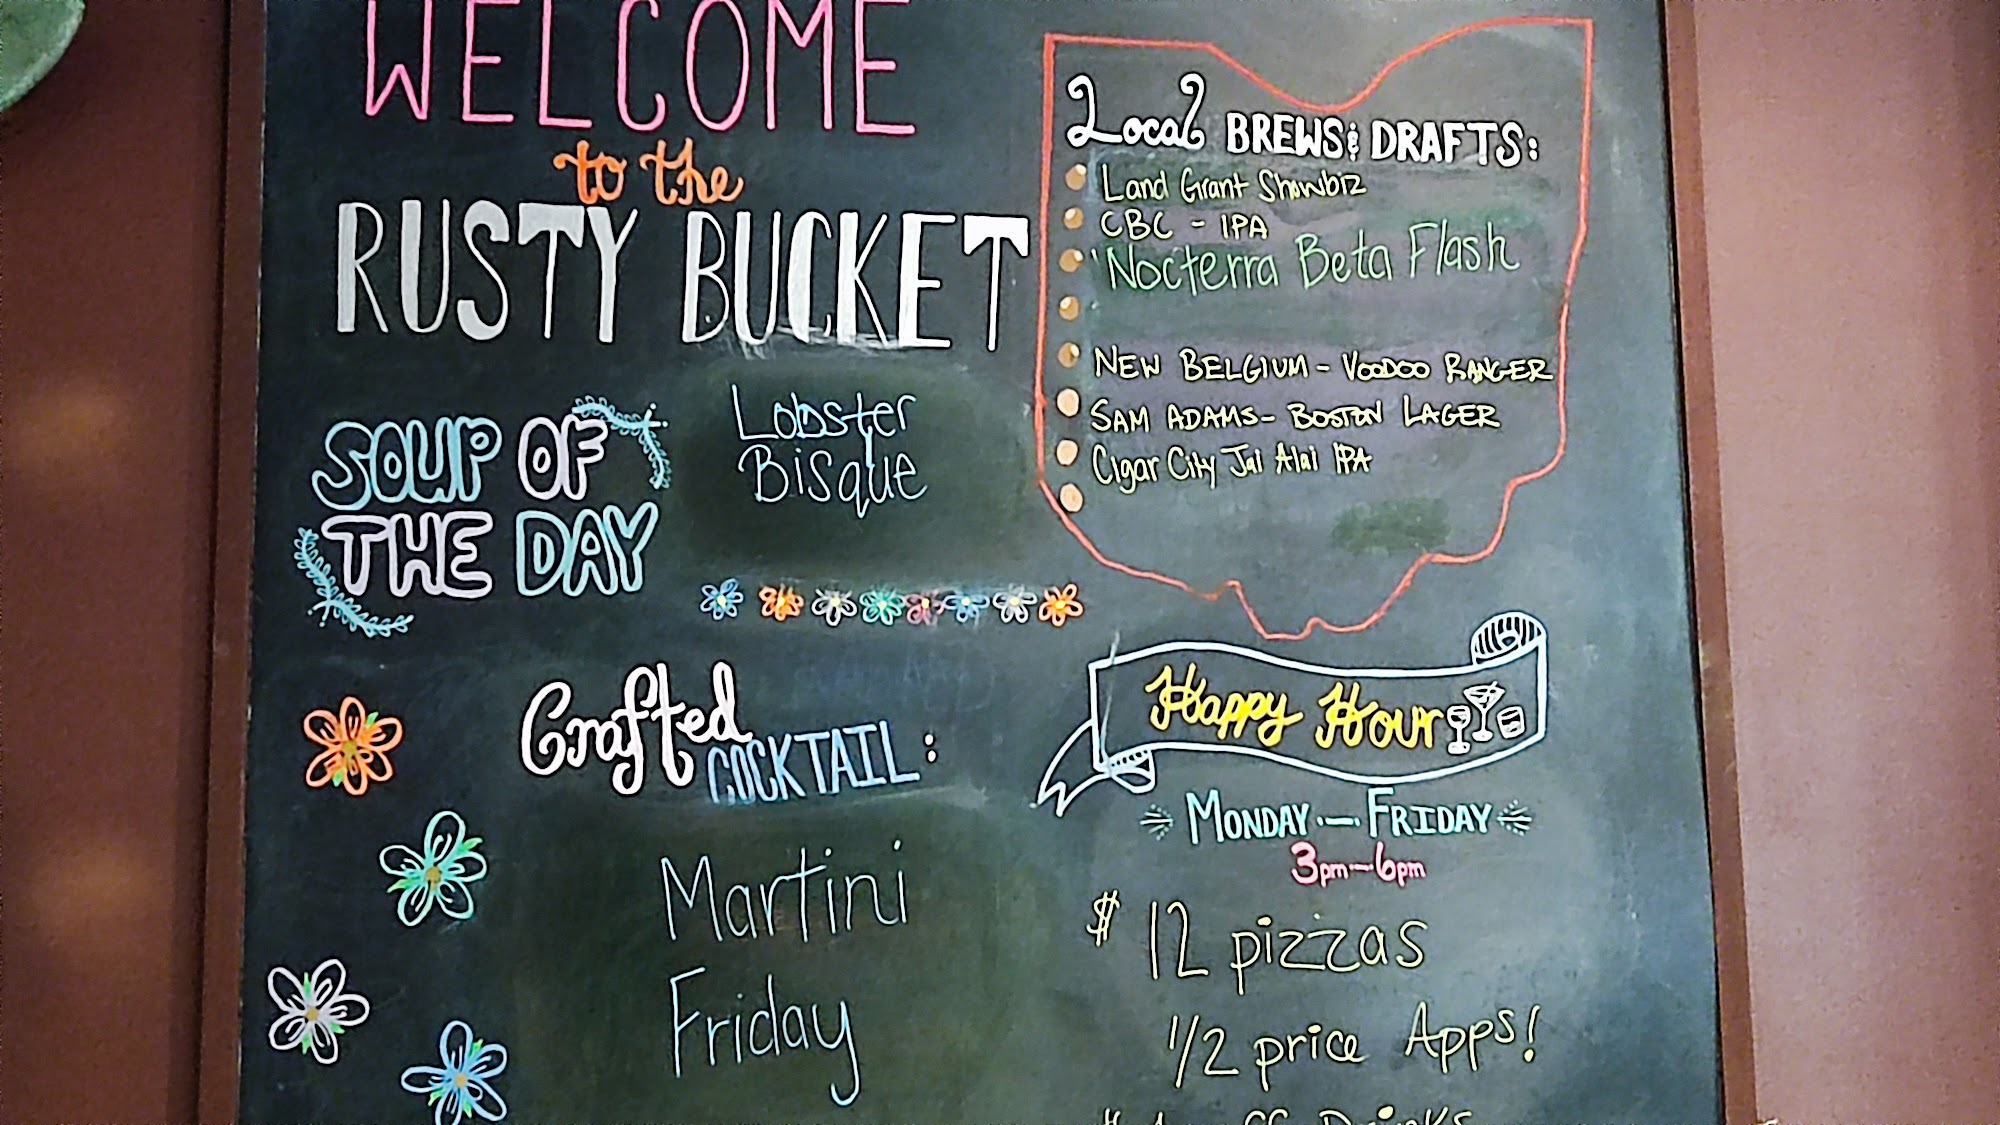 WELCOME
to the
RUSTY BUCKET
SOUP OF
THE DAY
Lobster
Bisque
Crafted
COCKTAIL:
Martini
Friday
Local BREWS & DRAFTS:
Land Grant Showbiz
CBC - IPA
Nocterra Beta Flash
NEW BELGIUM - VOODOO RANGER
SAM ADAMS - BOSTON LAGER
Cigar City Jai Alai IPA
Happy Hour
MONDAY - FRIDAY
3pm-6pm
$12 pizzas
1/2 price Apps!
off Drinks